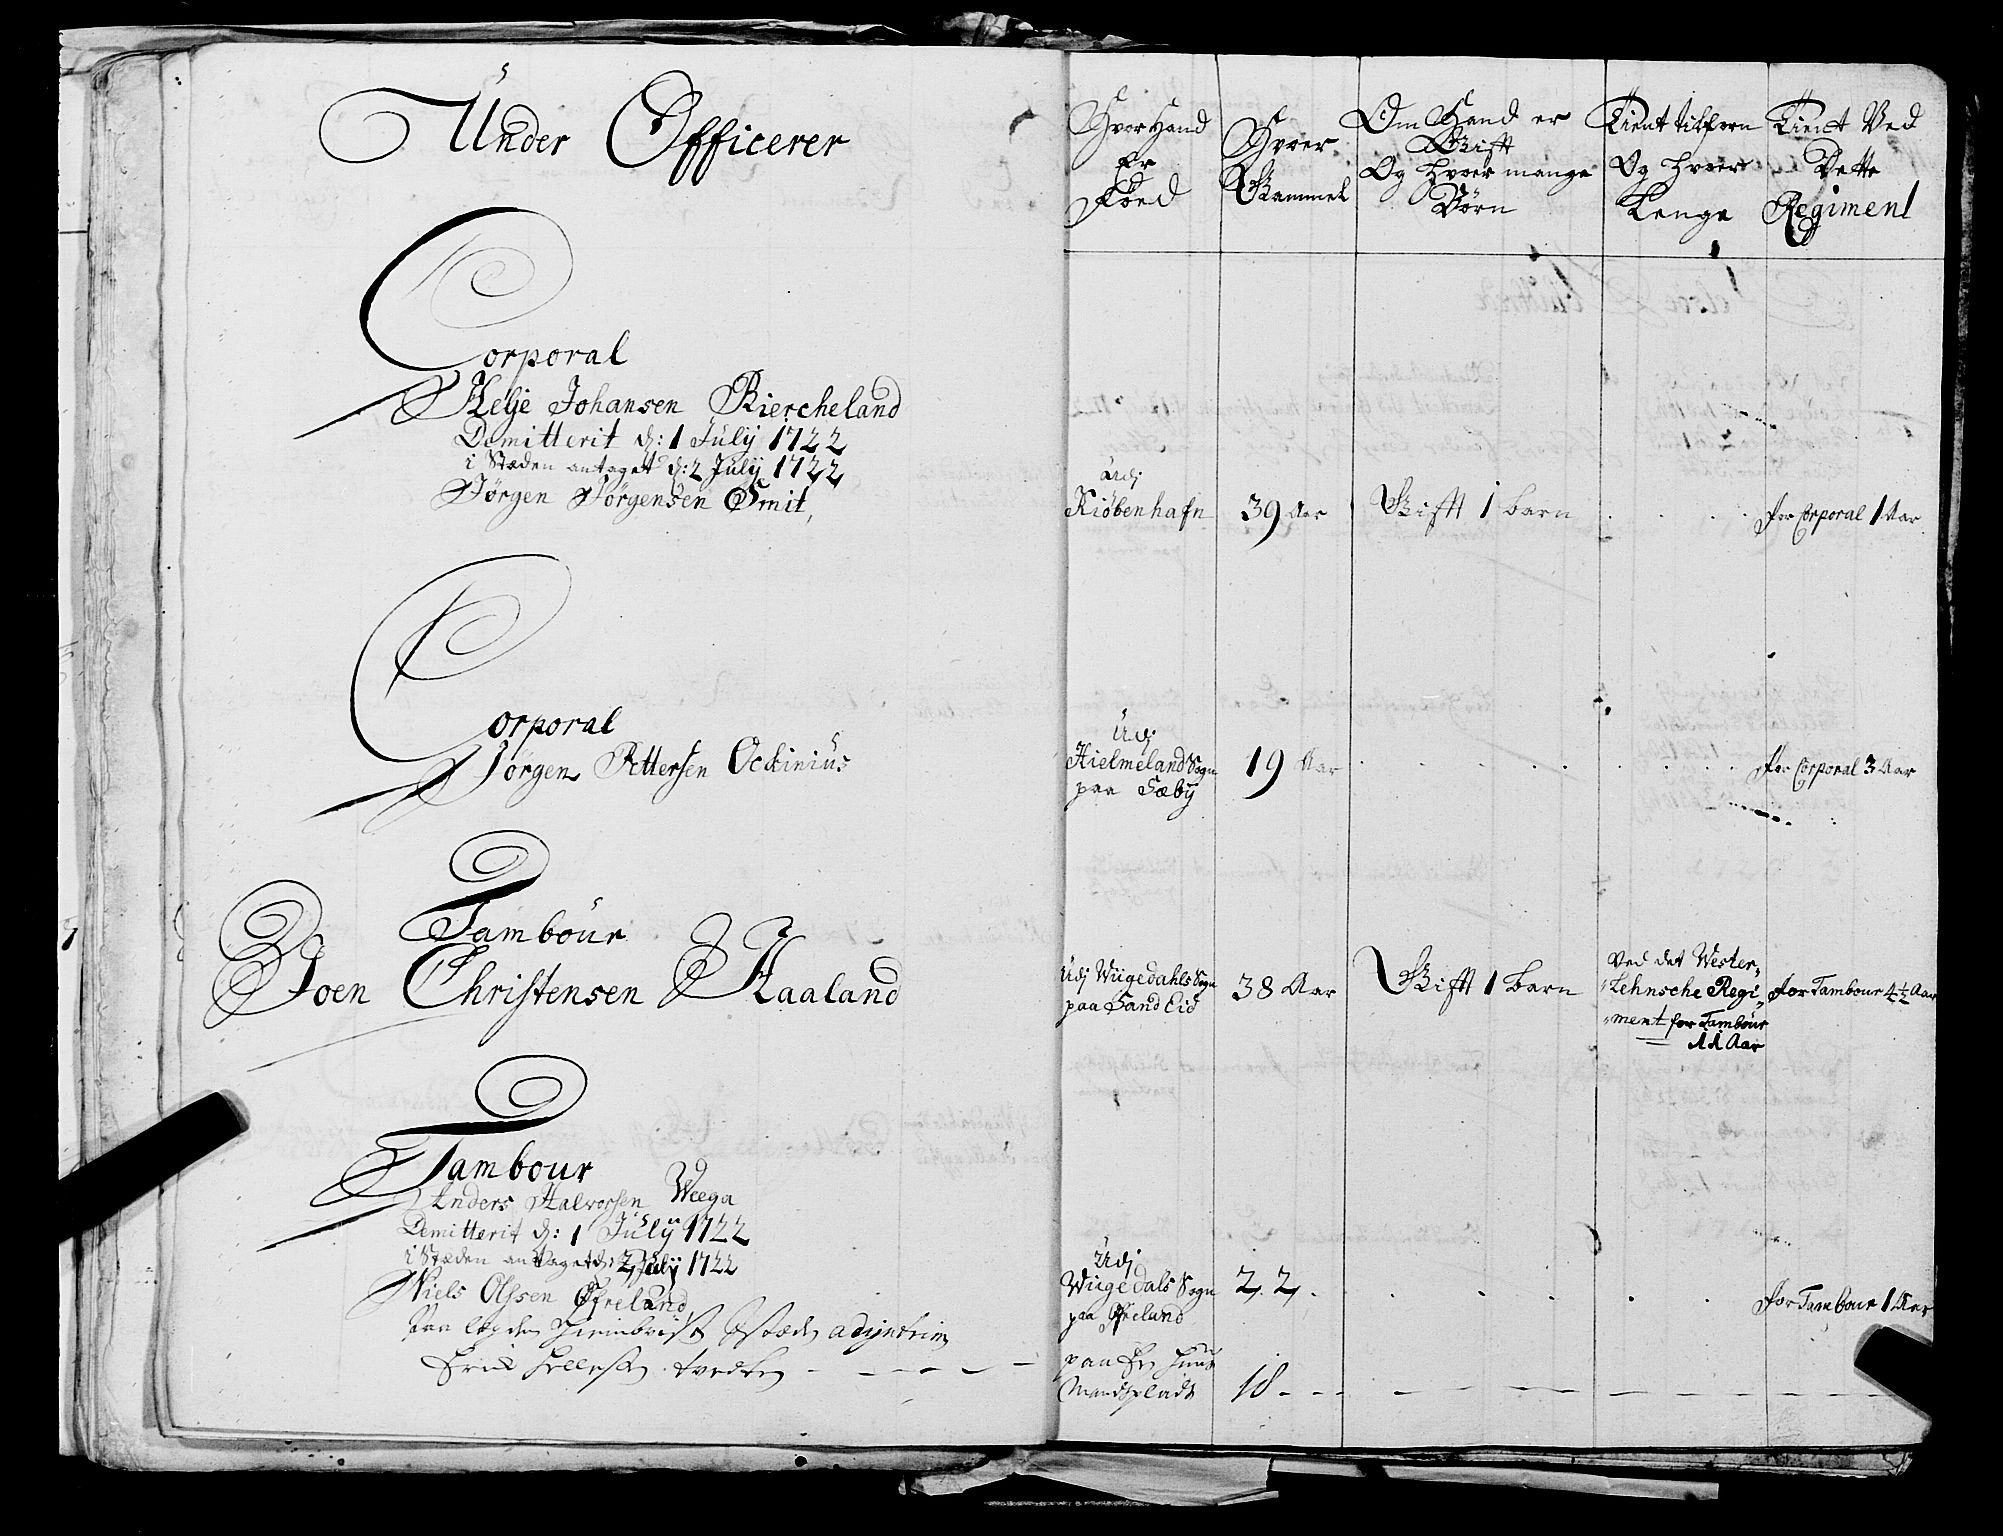 Under Officerer
Corporal
Helje Johansen Biercheland
Demitterit d: 1 July 1722
i Stæden antaget d: 2 July 1722
Jørgen Jørgensen Smit,
Corporal
Jørgen Pettersen Ockinius
Tambour
Joen Christensen Haaland
Tambour
Anders Halvorsen Weega
Demitterit d: 1 July 1722
i Stæden antaget d: 2 July 1722
Niels Olssen Øfreland
Hvor Hand
Er
Føed
Hvor
Gammel
Om Hand er
Gift
Og hvor mange
Børn
Tient tilforn
Og hvor
Lenge
Tient Ved
Dette
Regiment
Udj
Kiøbenhafn
39 Aar
Gifft 1 barn
for Corporal 1 Aar
Udj
Hielmeland Sogn
paa Sæby
19 Aar
for Corporal 3 Aar
Udj Wiigedahls Sogn
paa Sand Eid
38 Aar
Gifft 1 barn
Ved det Wester„
„Lehnsche Regi„
„ment for Tambour
11 Aar
for Tambour 4½ Aar
Udj
Wiigedals Sogn
paa Øfreland
22.
for Tambour 1 Aar
paa en Huus
Mandsplads
18